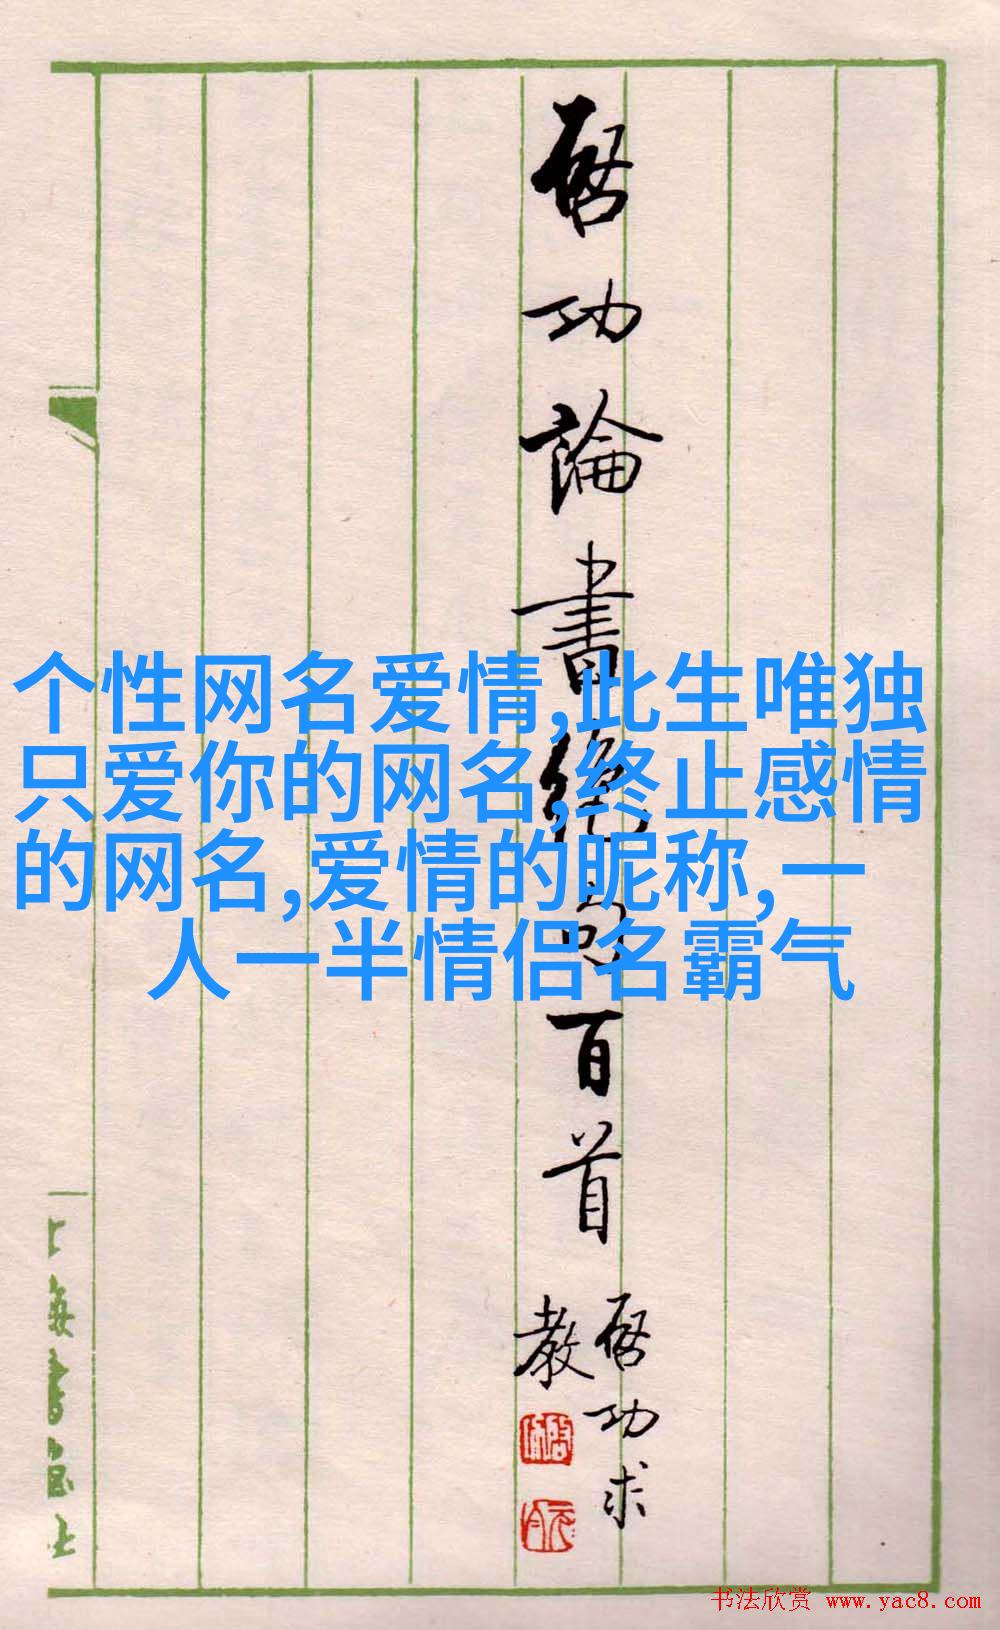 啟功論書絕句百首
啟功求
教
个性网名爱情,此生唯独
只爱你的网名,终止感情
的网名,爱情的昵称,一
人一半情侣名霸气
上海書畫社
书法欣赏 www.yac8.com